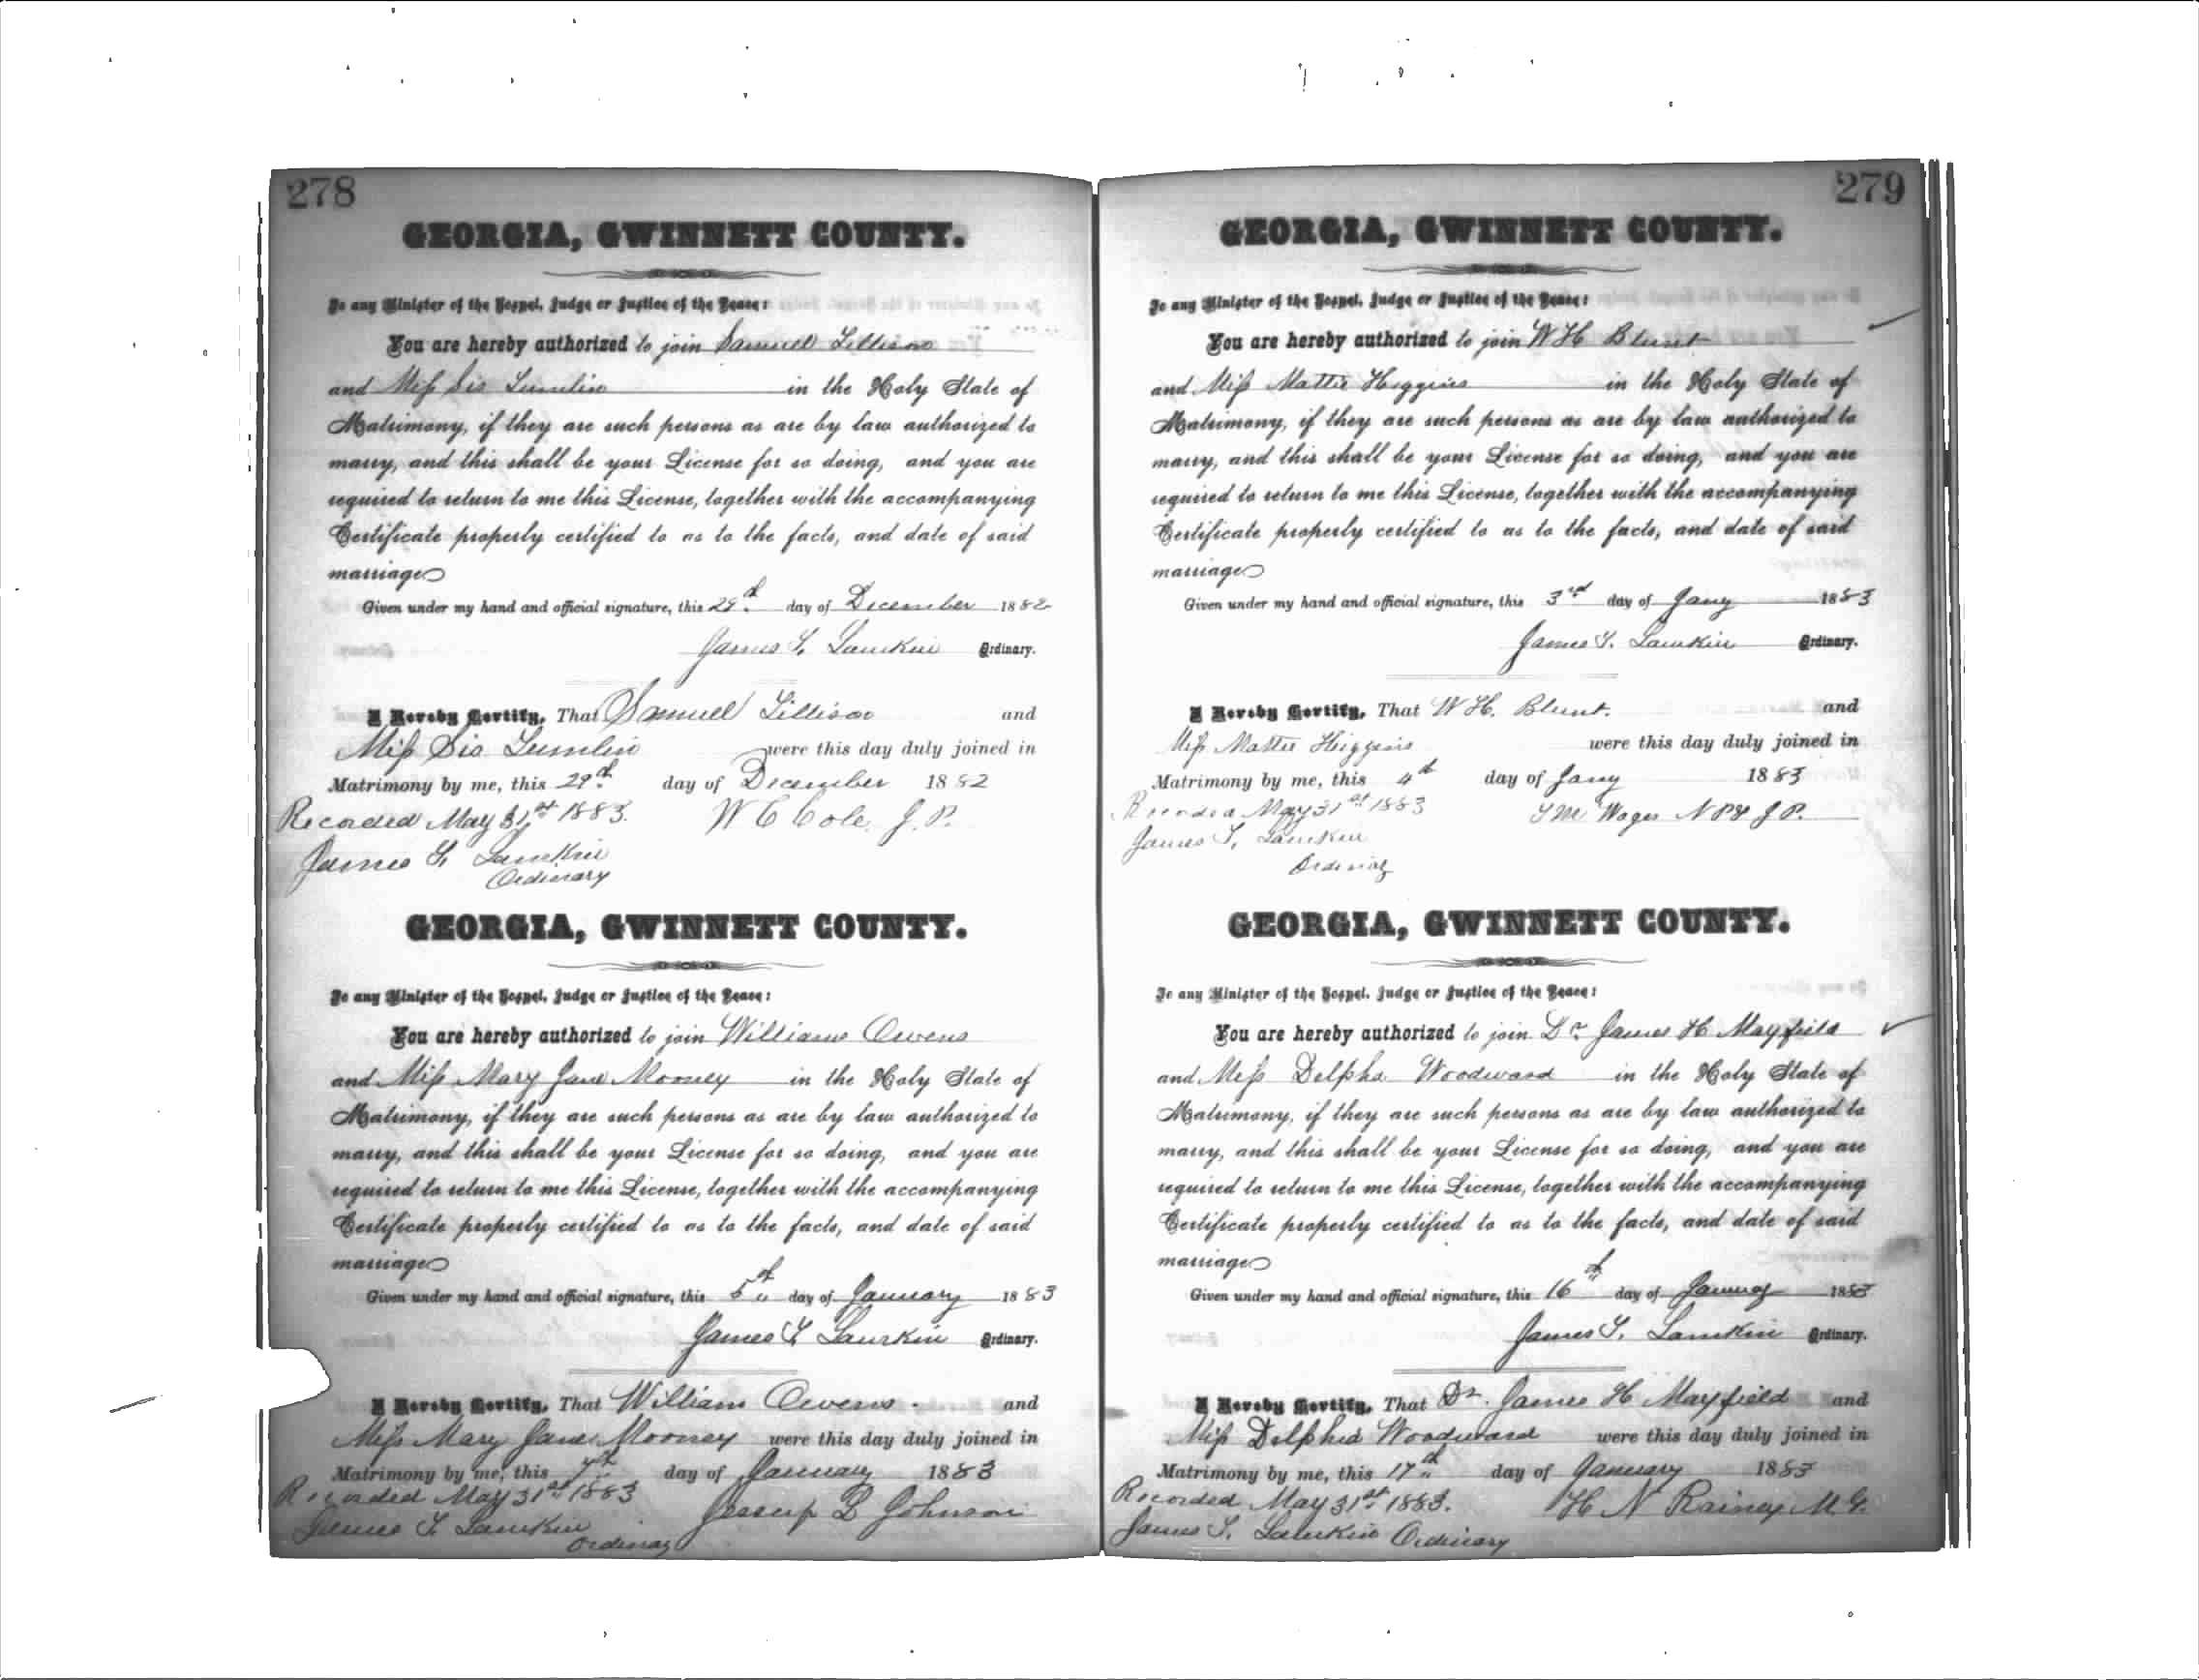 278
GEORGIA, GWINNETT COUNTY.
To any Minister of the Gospel, Judge or Justice of the Peace:
You are hereby authorized to join Samuel Lillison
and Miss Sis Tumlin in the Holy State of
Matrimony, if they are such persons as are by law authorized to
marry, and this shall be your License for so doing, and you are
required to return to me this License, together with the accompanying
Certificate properly certified to as to the facts, and date of said
marriage
Given under my hand and official signature, this 29th day of December 1882
James T. Lamkin Ordinary.
I Hereby Certify, That Samuell Lillison and
Miss Sis Tumlin were this day duly joined in
Matrimony by me, this 29th day of December 1882
Recorded May 31st 1883. W C Cole J. P.
James T. Lamkin
Ordinary
GEORGIA, GWINNETT COUNTY.
To any Minister of the Gospel, Judge or Justice of the Peace:
You are hereby authorized to join William Owens
and Miss Mary Jane Mooney in the Holy State of
Matrimony, if they are such persons as are by law authorized to
marry, and this shall be your License for so doing, and you are
required to return to me this License, together with the accompanying
Certificate properly certified to as to the facts, and date of said
marriage
Given under my hand and official signature, this 5th day of January 1883
James T. Lamkin Ordinary.
I Hereby Certify, That William Owens. and
Miss Mary Jane Mooney were this day duly joined in
Matrimony by me, this 7th day of January 1883
Recorded May 31st 1883 Jessup B Johnson
James T. Lamkin
Ordinary
279
GEORGIA, GWINNETT COUNTY.
To any Minister of the Gospel, Judge or Justice of the Peace:
You are hereby authorized to join W H Blunt
and Miss Mattie Huggins in the Holy State of
Matrimony, if they are such persons as are by law authorized to
marry, and this shall be your License for so doing, and you are
required to return to me this License, together with the accompanying
Certificate properly certified to as to the facts, and date of said
marriage
Given under my hand and official signature, this 3rd day of Jany 1883
James T. Lamkin Ordinary.
I Hereby Certify, That W H. Blunt. and
Miss Mattie Huggins were this day duly joined in
Matrimony by me, this 4th day of Jany 1883
Recorded May 31st 1883 Wages N P & J P.
James T. Lamkin
Ordinary
GEORGIA, GWINNETT COUNTY.
To any Minister of the Gospel, Judge or Justice of the Peace:
You are hereby authorized to join Dr James H Mayfield
and Miss Delpha Woodward in the Holy State of
Matrimony, if they are such persons as are by law authorized to
marry, and this shall be your License for so doing, and you are
required to return to me this License, together with the accompanying
Certificate properly certified to as to the facts, and date of said
marriage
Given under my hand and official signature, this 16th day of January 1883
James T. Lamkin Ordinary.
I Hereby Certify, That Dr. James H Mayfield and
Miss Delphia Woodward were this day duly joined in
Matrimony by me, this 17th day of January 1883
Recorded May 31st 1883. H N Rainey M. G.
James T. Lamkin Ordinary